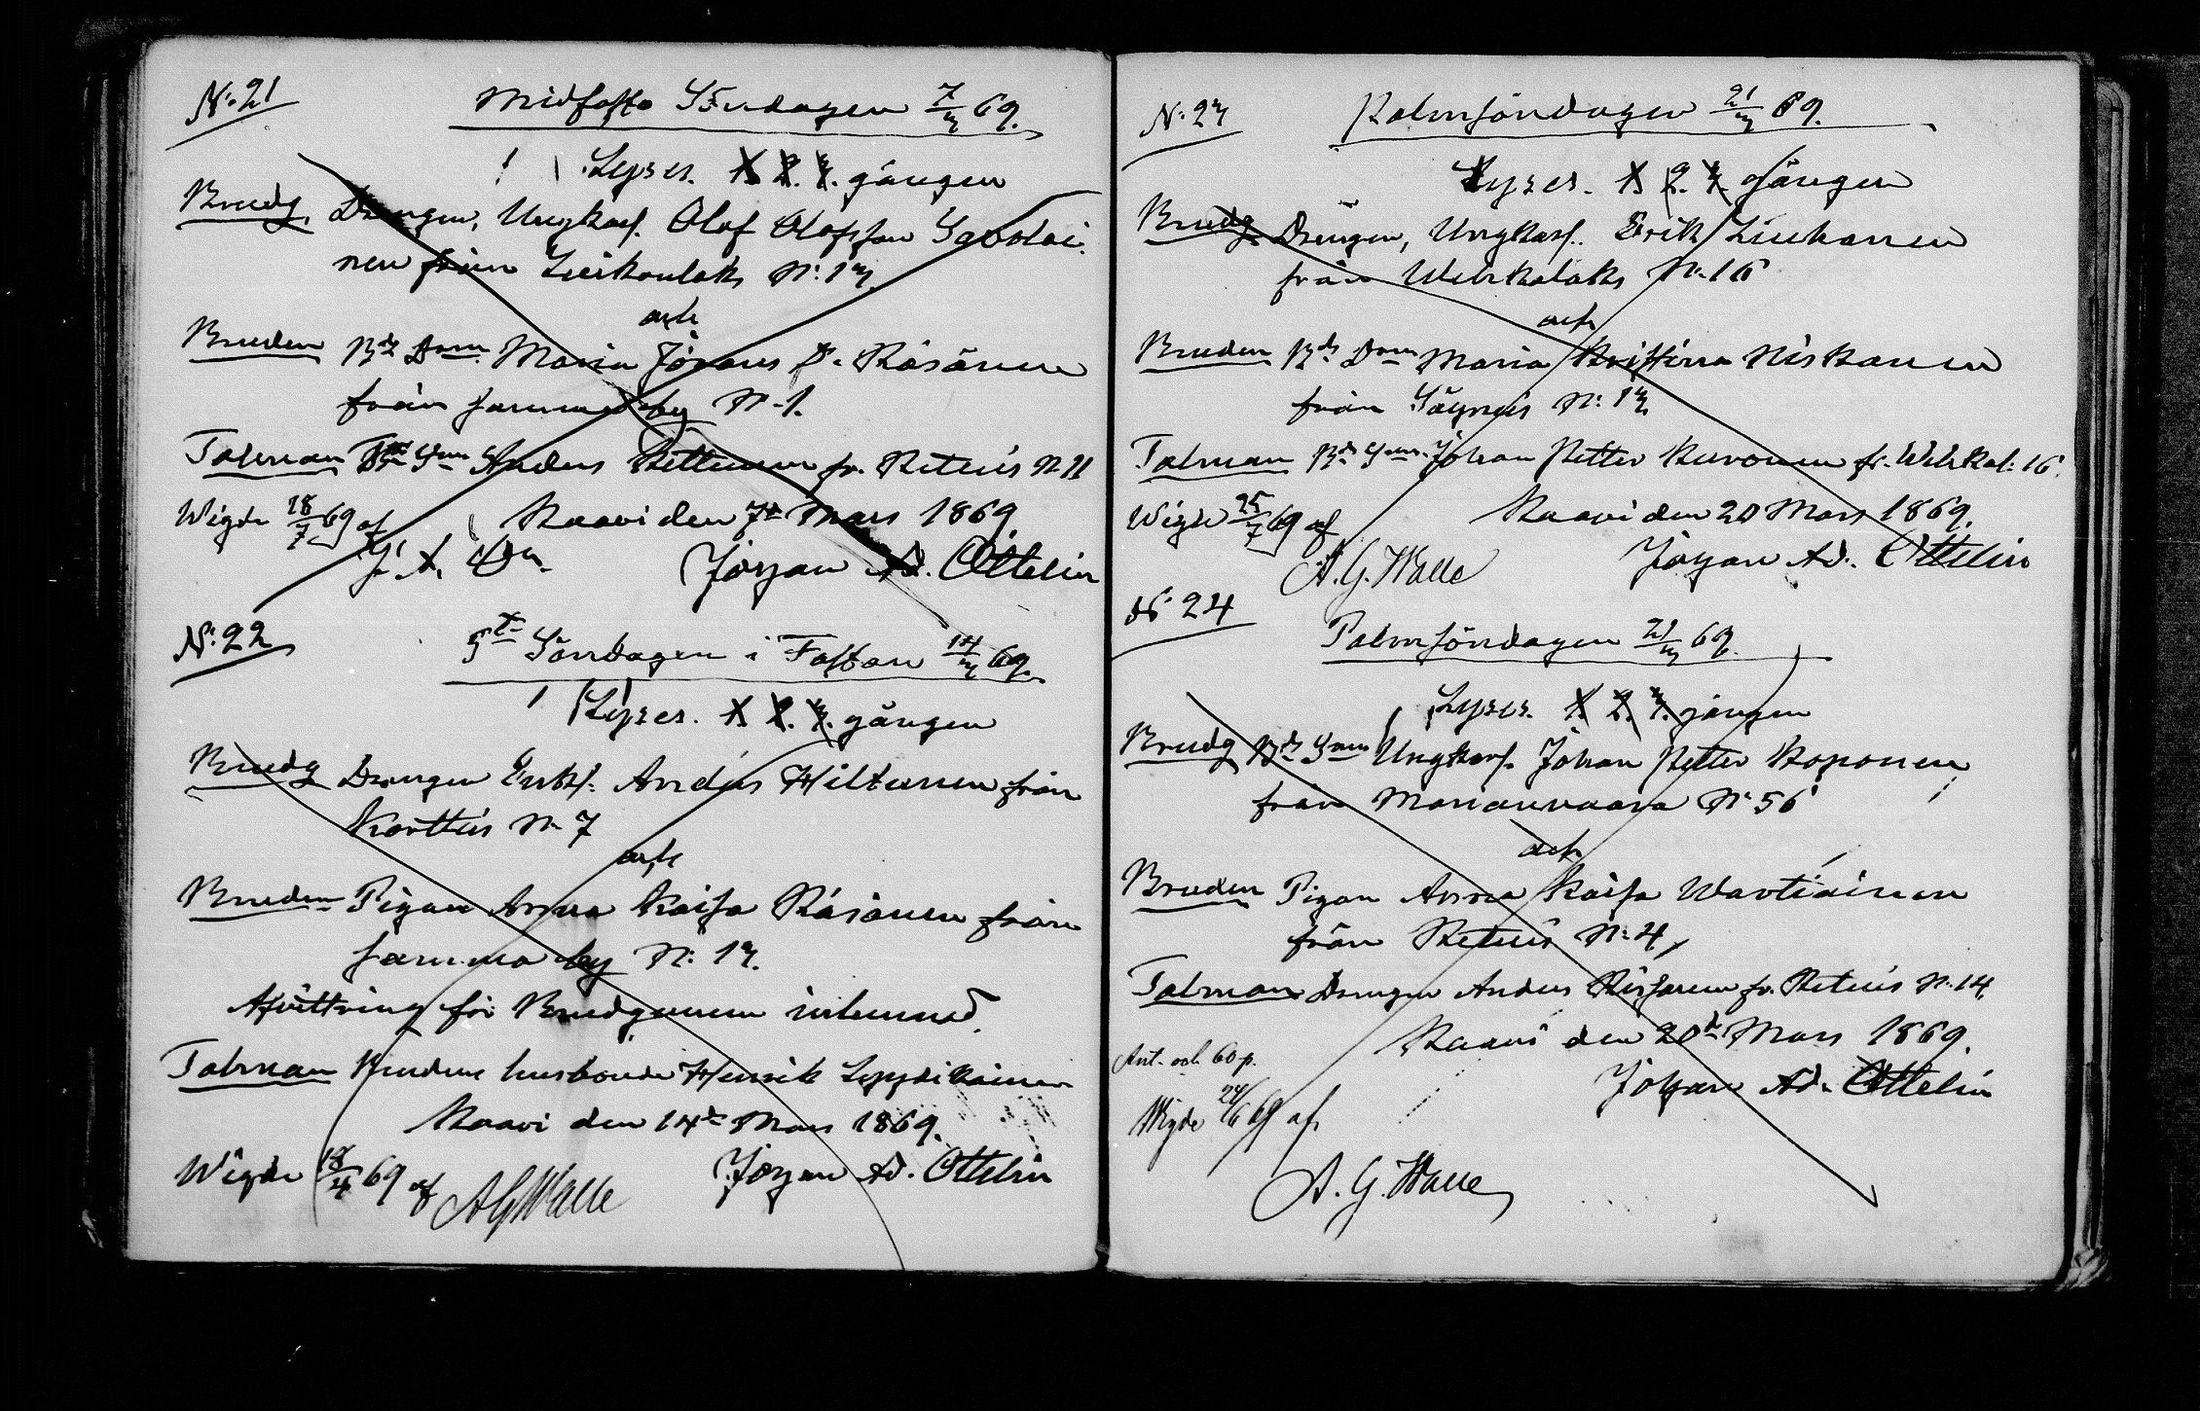 N:21
Midfasto Söndagen 7/3 69.
Lyses. 1. 2. 3. gången
Brudg. Drengen, Ungkarl. Olof Olofsson Savolai-
nen från Luikonlaks N:13.
och
Bruden Bd. Dom. Maria Görans D. Räsänen
från samma by N:1.
Talman Bd. Son Anders Pettunen fr. Retuis N 11
Kaavi den 7de Mars 1869.
Wigde 18/7 69 af
Johan Ad. Ottelin
N:22
5te Söndagen i Fastan 14/3 69.
Lyses. 1. 2. 3. gången
Brudg Drengen Enkl. Anders Hiltunen från
Korttis N 7
och
Bruden Pigan Anna Kaisa Räsänen från
samma by N: 13.
Afvittring för Brudgummen inlemnad.
Talman Brudens husbonde Henrik Leppikainen
Kaavi den 14de Mars 1869.
Johan Ad. Ottelin
Wigde 18/4 69 af AGWalle
N:23
Palmsöndagen 21/3 69.
Lyses. 1. 2. 3. gången
Brudg Drengen, Ungkarl. Erik Liukonen
från Wehkalaks N:16
och
Bruden Bd. Dom Maria Kristina Niskanen
från Säyneis N: 13
Talman Bd. Son. Johan Petter Kuronen fr. Wehkal: 16.
Kaavi den 20 Mars 1869.
Wigde 25/7 69 af
Johan Ad. Ottelin
A. G. Walle
N: 24
Palmsöndagen 21/3 69.
Lyses. 1. 2. 3. gången
Brudg Bd. Son Ungkarl. Johan Petter Koponen
från Marianvaara N 56
och
Bruden Pigan Anna Kaisa Wartiainen
från Retuis N: 4,
Talman Drengen Anders Rissanen fr. Retuis N. 14.
Kaavi den 20de Mars 1869.
Ant. och 60 p.
Johan Ad. Ottelin
Wigde 24/6 69 af
A. G. Walle